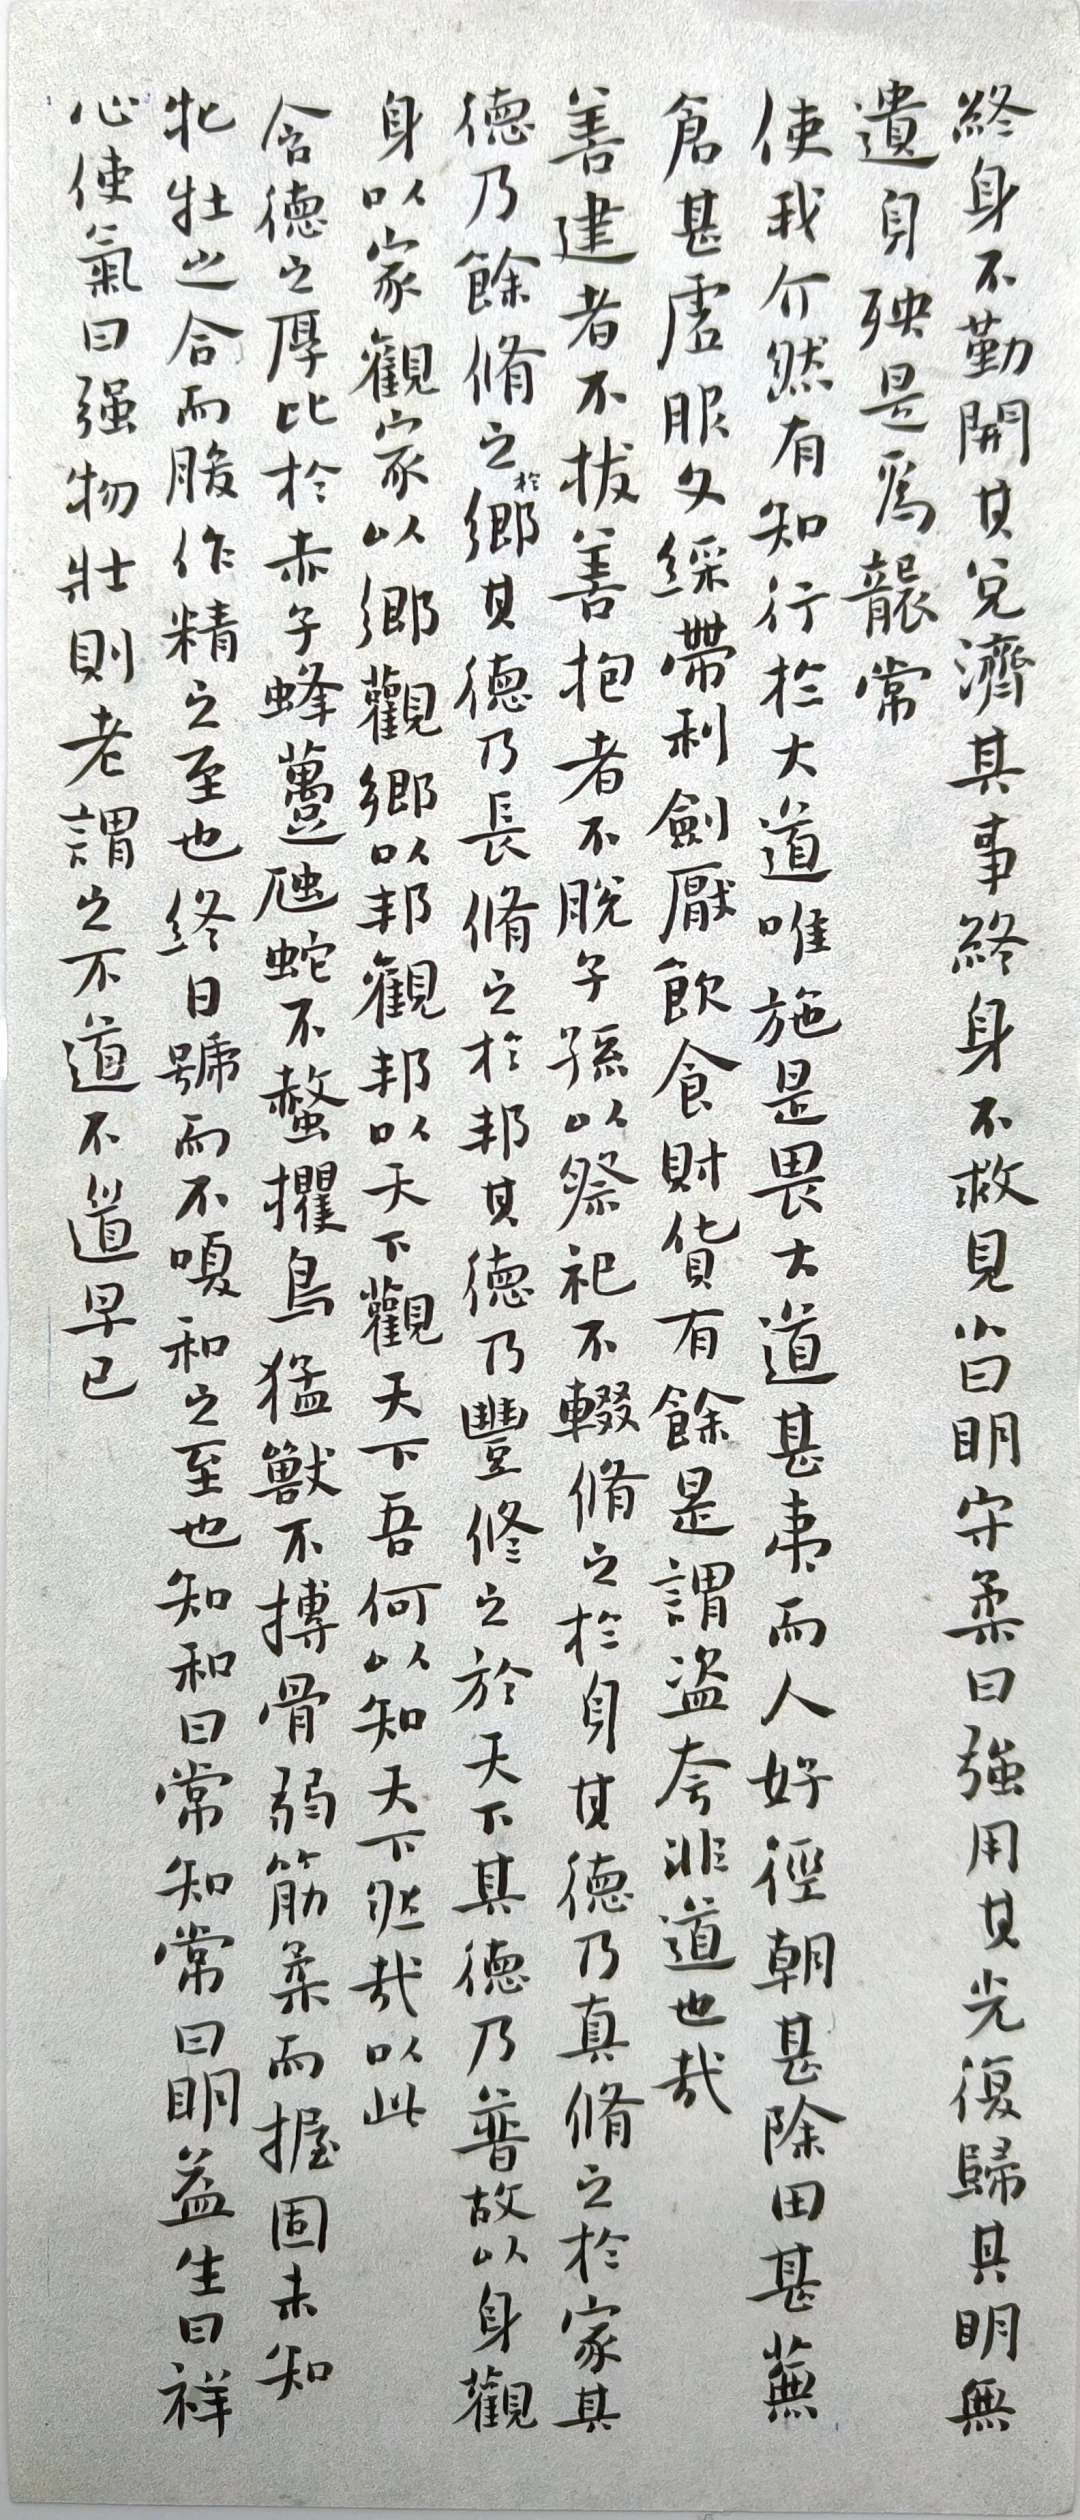 終身不勤開其兌濟其事終身不救見小曰明守柔曰強用其光復歸其明無
遺身殃是爲襲常
使我介然有知行於大道唯施是畏大道甚夷而人好徑朝甚除田甚蕪
倉甚虛服文綵帶利劍厭飲食財貨有餘是謂盜夸非道也哉
善建者不拔善抱者不脫子孫以祭祀不輟脩之於身其德乃真脩之於家其
德乃餘脩之於鄉其德乃長脩之於邦其德乃豐修之於天下其德乃普故以身觀
身以家觀家以鄉觀鄉以邦觀邦以天下觀天下吾何以知天下然哉以此
含德之厚比於赤子蜂蠆虺蛇不螫攫鳥猛獸不搏骨弱筋柔而握固未知
牝牡之合而朘作精之至也終日號而不嗄和之至也知和曰常知常曰明益生曰祥
心使氣曰强物壯則老謂之不道不道早已